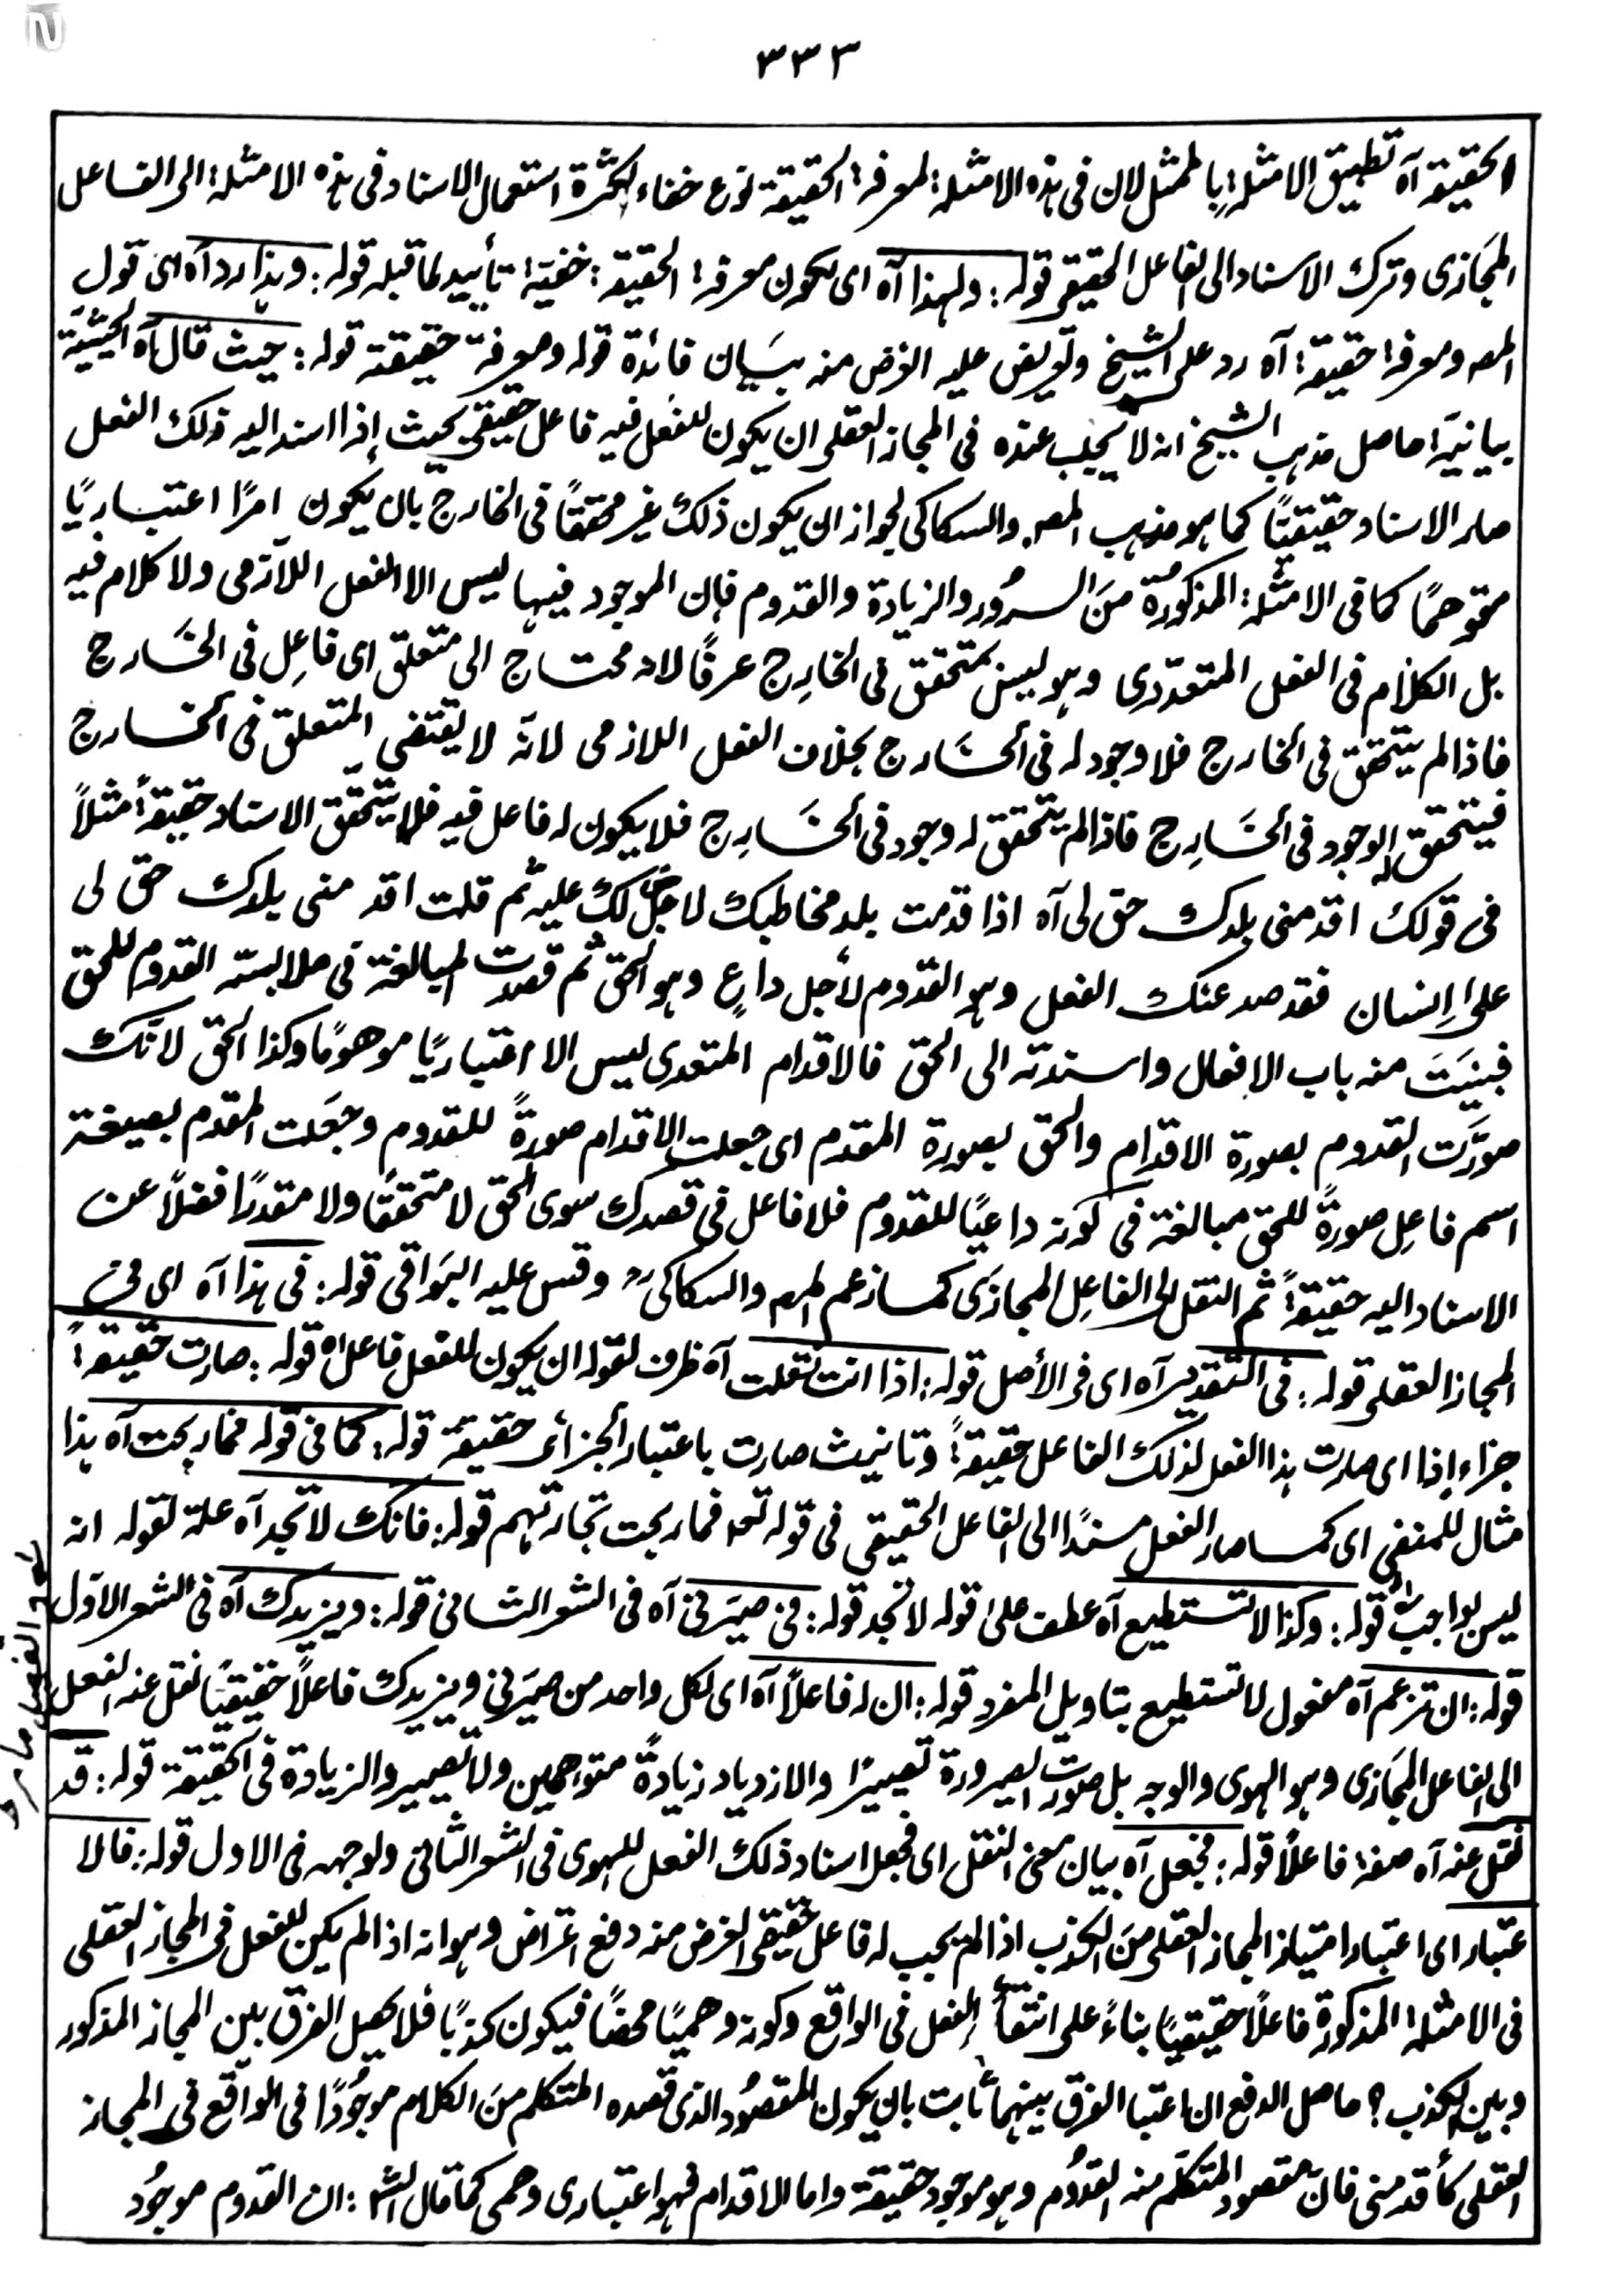 ٣٣٣
الحقيقة آه تطبيق الامثلة بالممثل لان فى هذه الامثلة لمعرفة الحقيقة نوع خفاء لكثرة استعمال الاسناد فى هذه الامثلة الى الفاعل
المجازى وترك الاسناد الى الفاعل الحقيقى قوله: ولهذا آه اى لكون معرفة الحقيقة خفية تأييد لما قبله قوله: وهذا رد آه اى قول
المصـ ومعرفة حقيقته آه رد على الشيخ وتعريض عليه الغرض منه بيان فائدة قوله ومعرفة حقيقته قوله: حيث قال آه الحيثية
بيانية حاصل مذهب الشيخ انه لا يجب عنده فى المجاز العقلى ان يكون للفعل فيه فاعل حقيقى بحيث إذا اسند اليه ذلك الفعل
صار الاسناد حقيقيًا كما هو مذهب المصـ والسكاكى لجواز ان يكون ذلك غير محققًا فى الخارج بان يكون امرًا اعتباريًا
متوهمًا كما فى الامثلة المذكورة من السرُور والزيادة والقدوم فإن الموجود فيها ليس الا الفعل اللازمى ولا كلام فيه
بل الكلام فى الفعل المتعدّدى وهو ليس بمتحقق فى الخارج عرفًا لانه محتاج الى متعلق اى فاعِل فى الخَارج
فاذا لم يتحقق فى الخارج فلا وجود له فى الخَارج بخلاف الفعل اللازمى لانه لا يقتضى المتعلق فى الخارج
فيتحقق له الوجود فى الخَارِج فاذا لم يتحقق له وجود فى الخَارِج فلا يكون له فاعل فيه فلا يتحقق الاسناد حقيقةً مثلاً
فى قولك اقدمنى بلدك حق لى آه اذا قدمت بلد مخاطبك لاجل حق لك عليه ثم قلت اقدمنى بلدك حق لى
على إنسان فقد صدر عنك الفعل وهو القدوم لأجل داعٍ وهو الحق ثم قصدت المبالغة فى ملابسته القدوم للحق
فبنيَتَ منه باب الافعال واسندته الى الحق فالاقدام المتعدى ليس الا اعتباريًا موهومًا وكذا الحق لانّك
صوّرت القدوم بصورة الاقدام والحق بصورة المقدم اى جعلت الاقدام صورةً للقدوم وجعَلت المقدم بصيغة
اسم فاعِل صورةً للحق مبالغة فى كونه داعيًا للقدوم فلا فاعل فى قصدك سوى الحق لا متحققًا ولا مقدرًا فضلًا عن
الاسناد اليه حقيقةً ثم النقل الى الفاعِل المجازى كما زعم المصـ والسكاكى وقس عليه البَواقى قوله: فى هذا آه اى فى
المجاز العقلى قوله: فى التقدير آه اى فى الأصل قوله: اذا انت نقلت آه ظرف لقوله ان يكون للفعل فاعل آه قوله: صارت حقيقةً
جزاء إذا اى صارت هذا الفعل لذلك الفاعل حقيقةً وتانيث صارت باعتبار الجزأى حقيقة قوله: كما فى قوله فما ربحت آه هذا
مثال للمنفى اى كما صار الفعل مسندًا الى الفاعل الحقيقى فى قوله تعـ فما ربحت تجارتهم قوله: فانك لا تجد آه علة لقوله انه
ليس بواجب قوله: وكذا لا تستطيع آه عطف على قوله لا تجد قوله: فى صيّرنى آه فى الشعر الثانى قوله: ويزيدك آه فى الشعر الاوّل
قوله: ان تزعم آه مفعول لا تستطيع بتاويل المفرد قوله: ان له فاعلاً آه اى لكل واحد من صيّرنى ويزيدك فاعلاً حقيقيًا نقل عنه الفعل
الى الفاعل المجازى وهو الهوى والوجه بل صورت الصيرورة تصييرًا والازدياد زيادةً متواهمين ولا تصيير والزيادة فى الحقيقة قوله: قد
نقل عنه آه صفة فاعلاً قوله: فجعل آه بيان معنى النقل اى فجعل اسناد ذلك الفعل للهوى فى الشعر الثانى ولوجهه فى الاول قوله: فالا
عتبار اى اعتبار امتياز المجاز العقلى من الكذب اذا لم يجب له فاعل حقيقى الغرض منه دفع اعتراض وهو انه اذا لم يكن للفعل فى المجاز العقلى
فى الامثلة المذكورة فاعلاً حقيقيًا بناءً على انتفاء الفعل فى الواقع وكونه وهميًا محضًا فيكون كذبًا فلا يصل الفرق بين المجاز المذكور
وبين الكذب؟ حاصل الدفع ان اعتبا الفرق بينهما ثابت بان يكون المقصُود الذى قصده المتكلم من الكلام موجُودًا فى الواقع فى المجاز
العقلى كأقدمنى فان مقصود المتكلم منه القدُوم وهو موجود حقيقة واما الاقدام فهو اعتبارى وهمى كما قال الشـ: ان القدوم موجُود